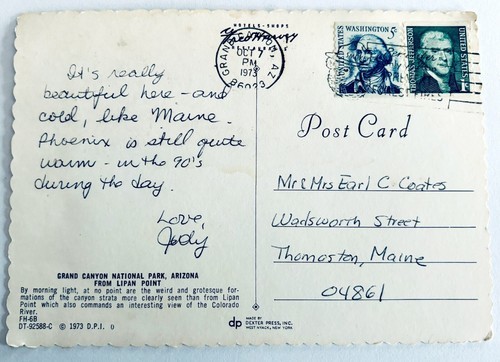 HOTELS-SHOPS
Fred Harvey
GRAND CANYON, AZ
OCT 7
PM
1973
86023
UNITED STATES
WASHINGTON 5¢
THOMAS JEFFERSON
UNITED STATES
1¢
It's really
beautiful here - and
cold, like Maine.
Phoenix is still quite
warm - in the 90's
during the day.
Love,
Jody
Post Card
Mr & Mrs Earl C. Coates
Wadsworth Street
Thomaston, Maine
04861
GRAND CANYON NATIONAL PARK, ARIZONA
FROM LIPAN POINT
By morning light, at no point are the weird and grotesque for-
mations of the canyon strata more clearly seen than from Lipan
Point which also commands an interesting view of the Colorado
River.
FH-6B
DT-92588-C © 1973 D.P.I. 0
dp MADE BY
DEXTER PRESS, INC.
WEST NYACK, NEW YORK